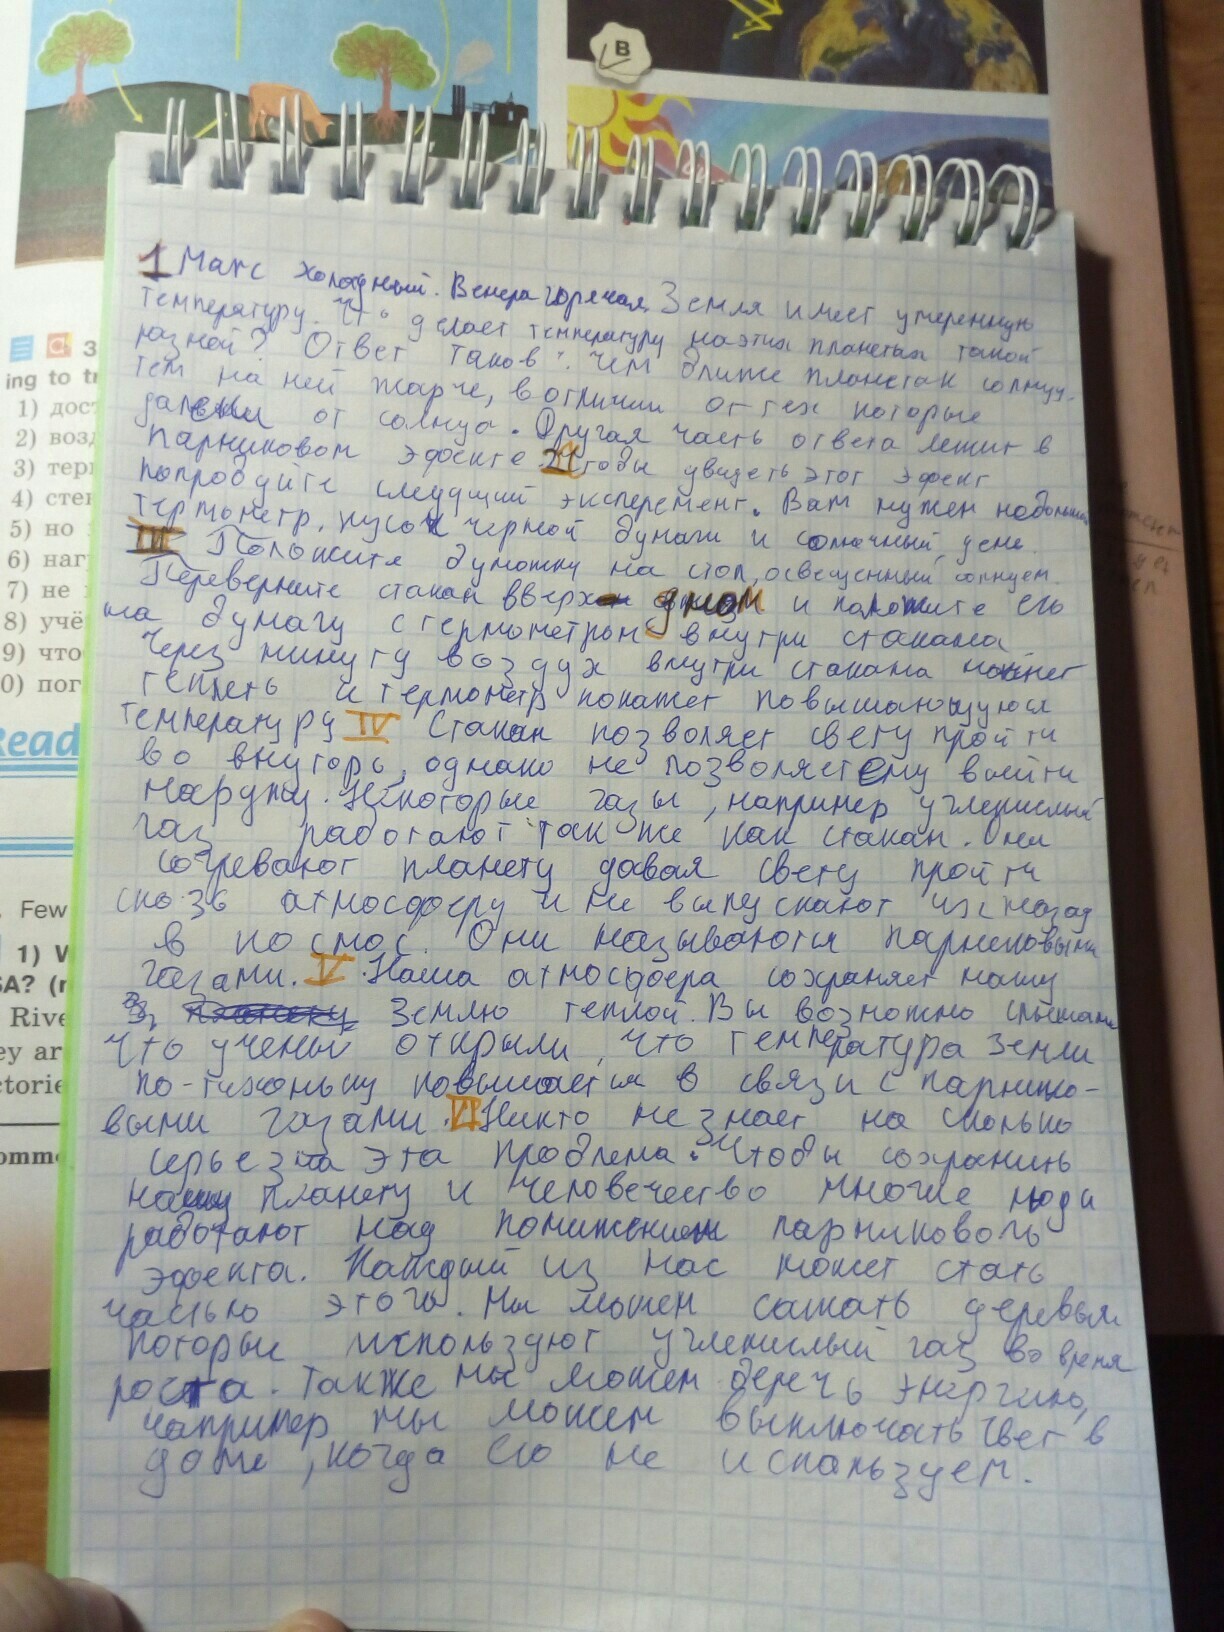 B
З
ing to tr
1) дос
2) возд
3) тер
4) сте
5) но
6) наг
7) не
8) учё
9) что
0) пог
Read
. Few
1) W
SA? (r
Rive
ey ar
ctorie
omme
1 Марс холодный. Венера горячая. Земля имеет умеренную
температуру. Что делает температуру на этих планетах такой
разной? Ответ таков: Чем ближе планета к солнцу,
тем на ней жарче, в отличии от тех которые
далеки от солнца. Другая часть ответа лежит в
парниковом эфекте. II Чтобы увидеть этот эфект
попробуйте следущий эксперемент. Вам нужен небольшой
термометр, кусок черной бумаги и солнечный день.
III Положите бумажку на стол, освещенный солнцем.
Переверните стакан вверх дном и положите его
на бумагу с термометром внутри стакана
Через минуту воздух внутри стакана начнет
теплеть и термометр покажет повышающуюся
температуру IV Стакан позволяет свету пройти
во внуторь, однако не позволяет ему выйти
наружу. Некоторые газы, например углекислый
газ работают так же как стакан. Они
согревают планету давая свету пройти
сквозь атмосферу и не выпускают их назад
в космос. Они называются парниковыми
газами. V Наша атмосфера сохраняет нашу
Землю теплой. Вы возможно слышали
что ученые открыли, что температура Земли
по-тихоньку повышается в связи с парнико-
выми газами. VI Никто не знает на сколько
серьезна эта проблема. Чтобы сохранить
нашу планету и человечество многие люди
работают над понижением парникового
эфекта. Каждый из нас может стать
частью этого. Мы можем сажать деревья
которые используют углекислый газ во время
роста. Также мы можем беречь энергию,
например мы можем выключать свет в
доме, когда его не используем.